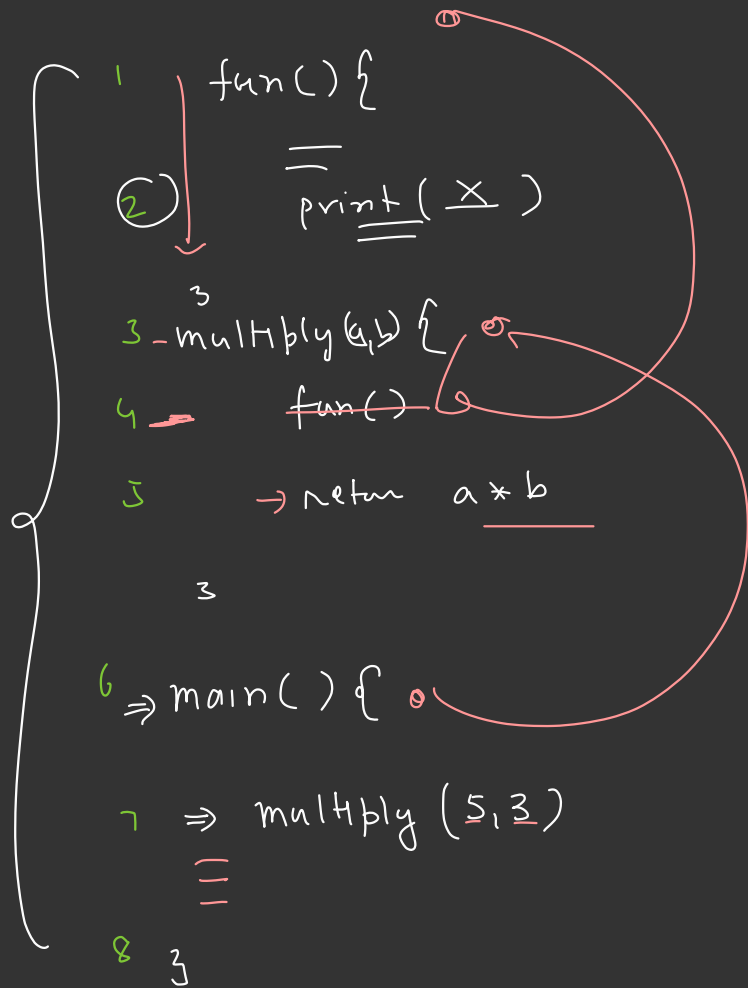 1 fun() {
2 print( X )
}
3 multiply(a,b) {
4 fun()
5 → return a * b
}
6 ⇒ main() {
7 ⇒ multiply (5,3)
8 }